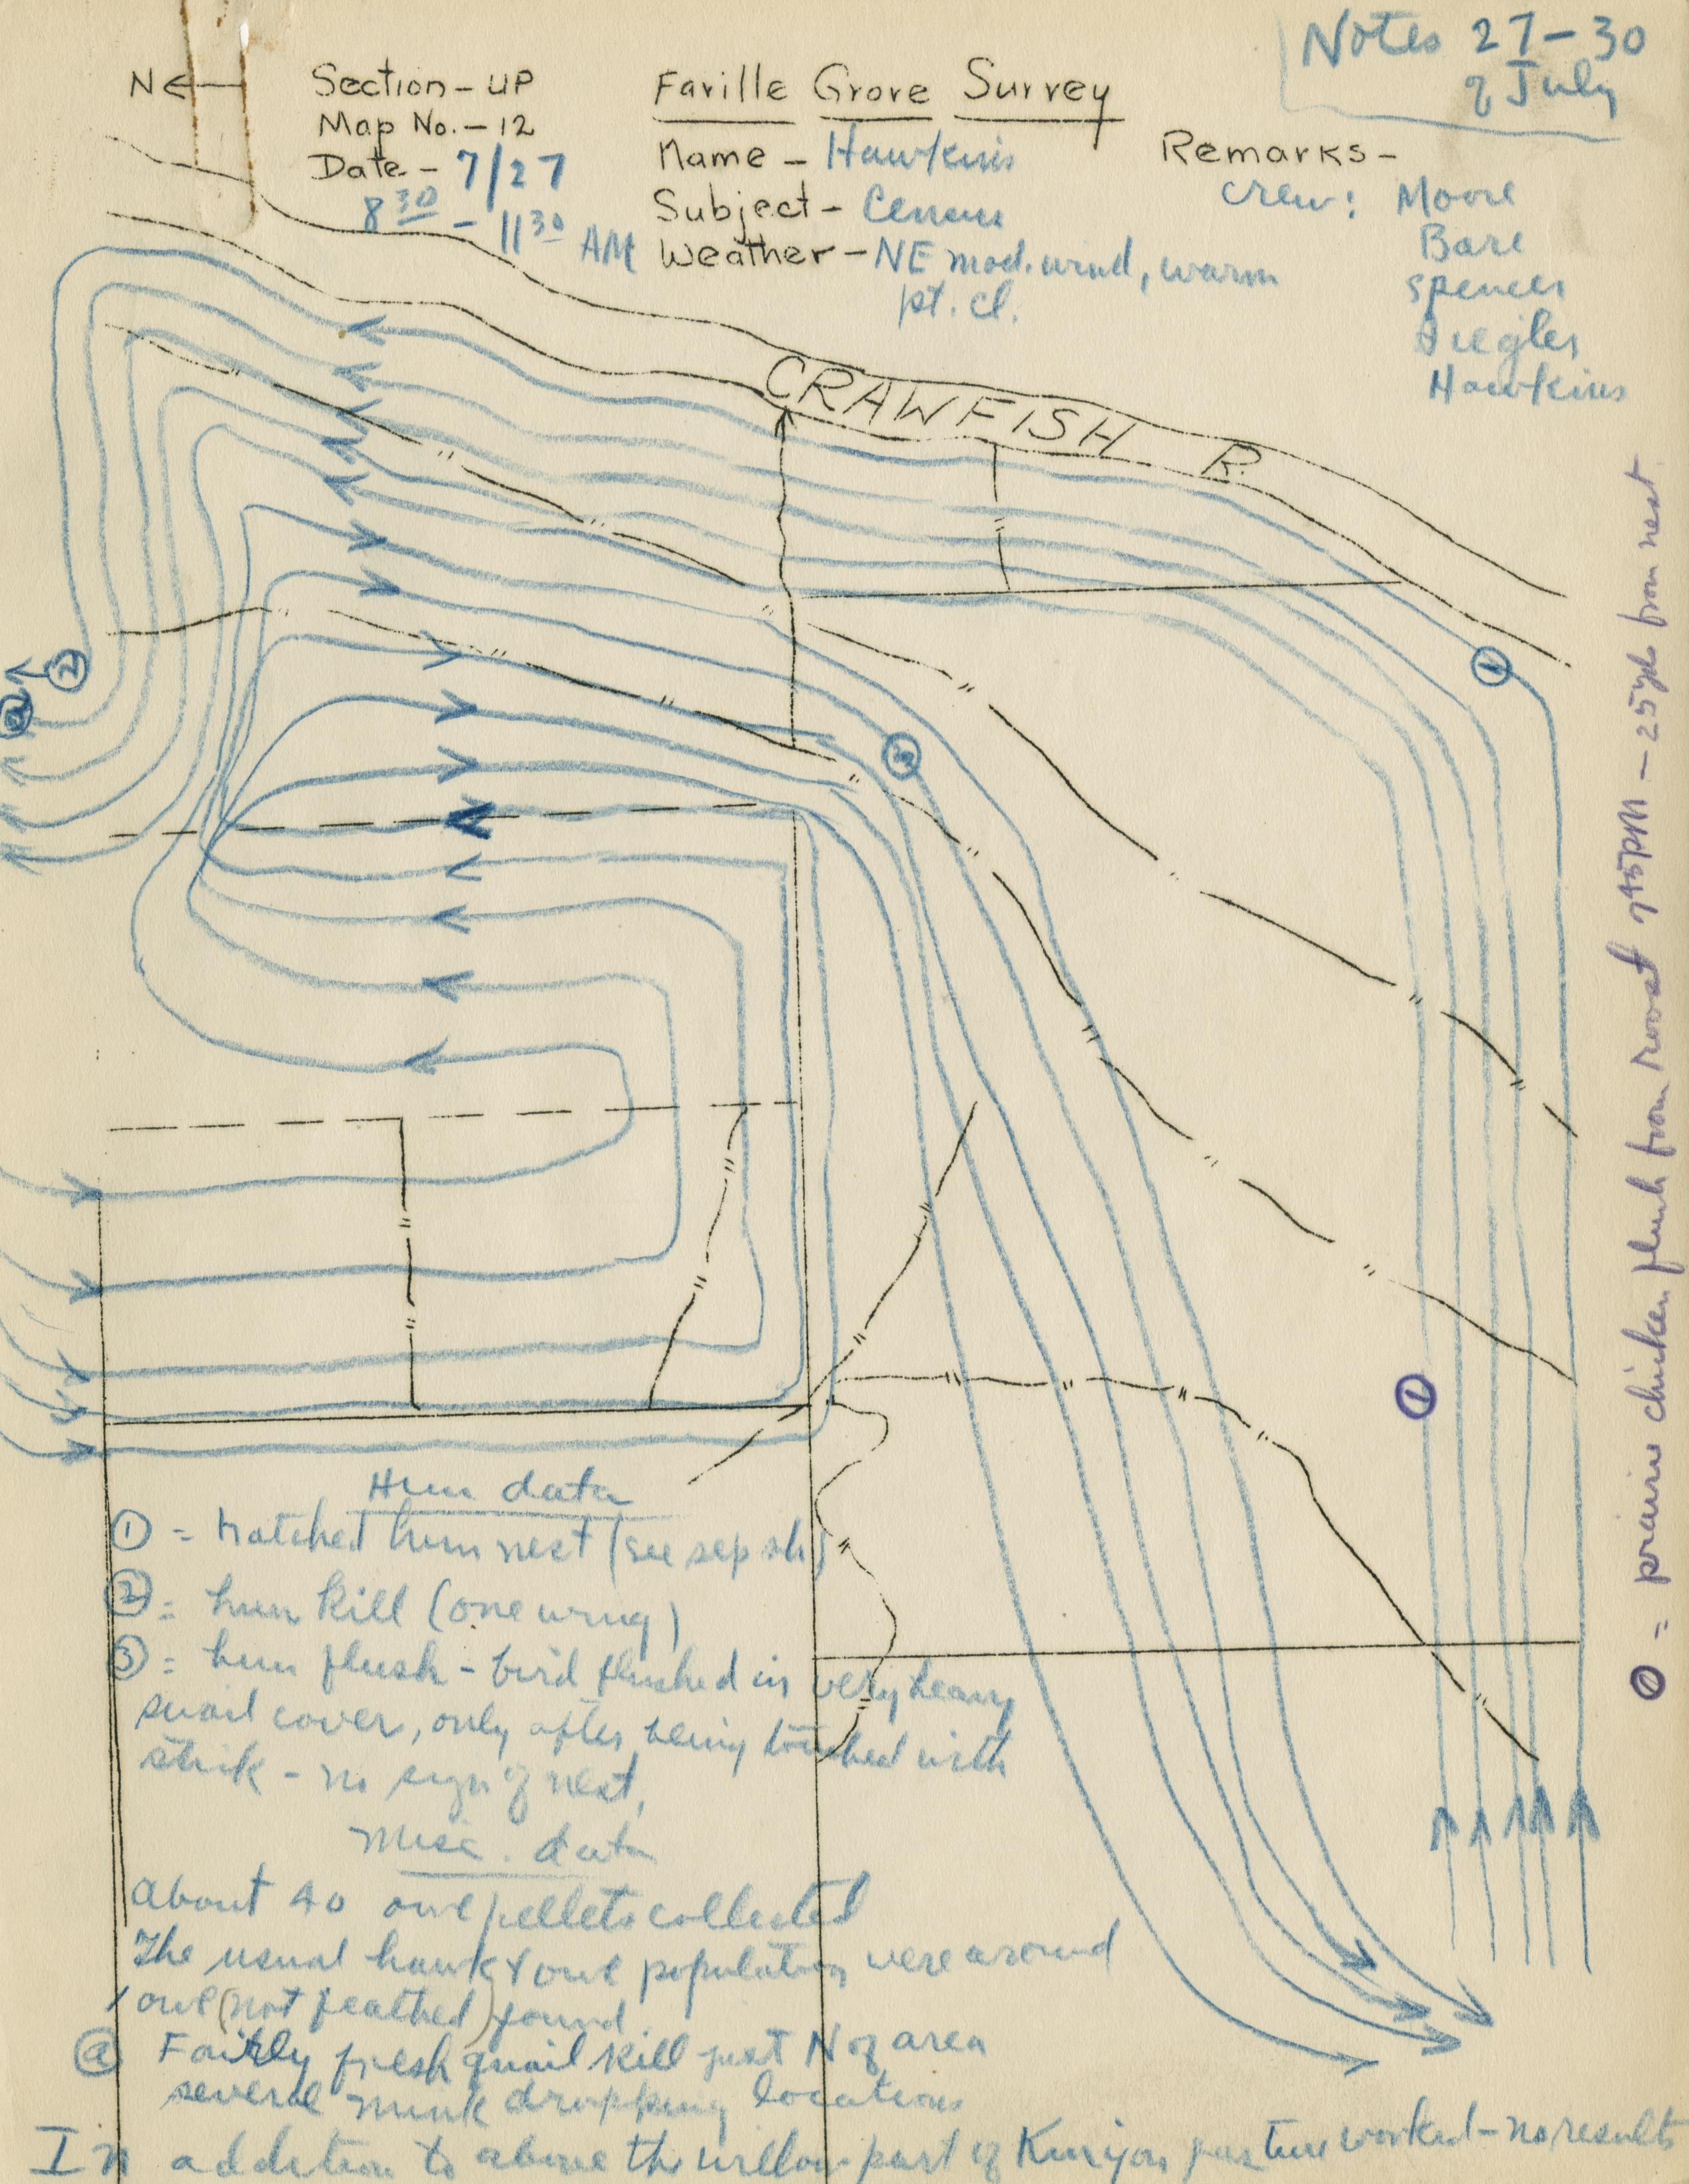 Notes 27-30
of July
N
Section - UP
Map No. - 12
Date - 7/27
8 30 - 11 30 AM
Faville Grove Survey
Name - Hawkins
Subject - Census
Weather - NE mod. wind, warm
pt. cl.
Remarks -
crew: Moore
Bare
Spencer
Hawkins
CRAWFISH R.
1
2
a
3
1
Hun data
① = hatched hun nest (see sep sh)
② = hun kill (one wing)
③ = hun flush - bird flushed in very heavy
snail cover, only after being touched with
stick - no sign of nest,
Misc. data
About 40 owl pellets collected
The usual hawk & owl population were around
1 owl (not feathed) found
ⓐ Fairly fresh quail kill just N of area
several mink dropping locations
In addition to above the willow part of pasture worked - no results
① = prairie chicken flush from roost 7 45 PM - 25 yds from nest